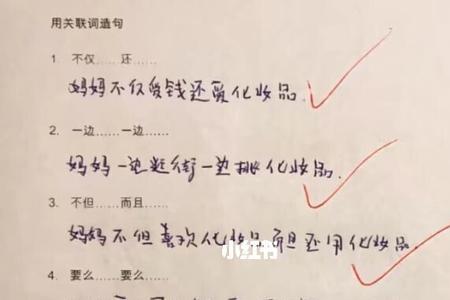 用关联词造句
1. 不仅……还……
妈妈不仅爱钱还爱化妆品.
2. 一边……一边……
妈妈一边逛街一边挑化妆品.
3. 不但……而且……
妈妈不但喜欢化妆品而且还用化妆品
小红书
4. 要么……要么……